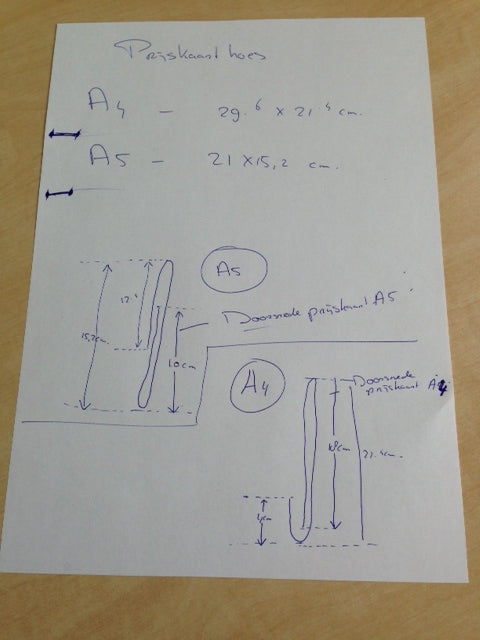 Prijskaart hoes
A4 - 29.6 x 21.4 cm.
A5 - 21 x 15,2 cm.
A5
Doorsnede prijskaart A5
15,2cm
10cm
A4
Doorsnede
prijskaart A4
21.4cm.
4cm